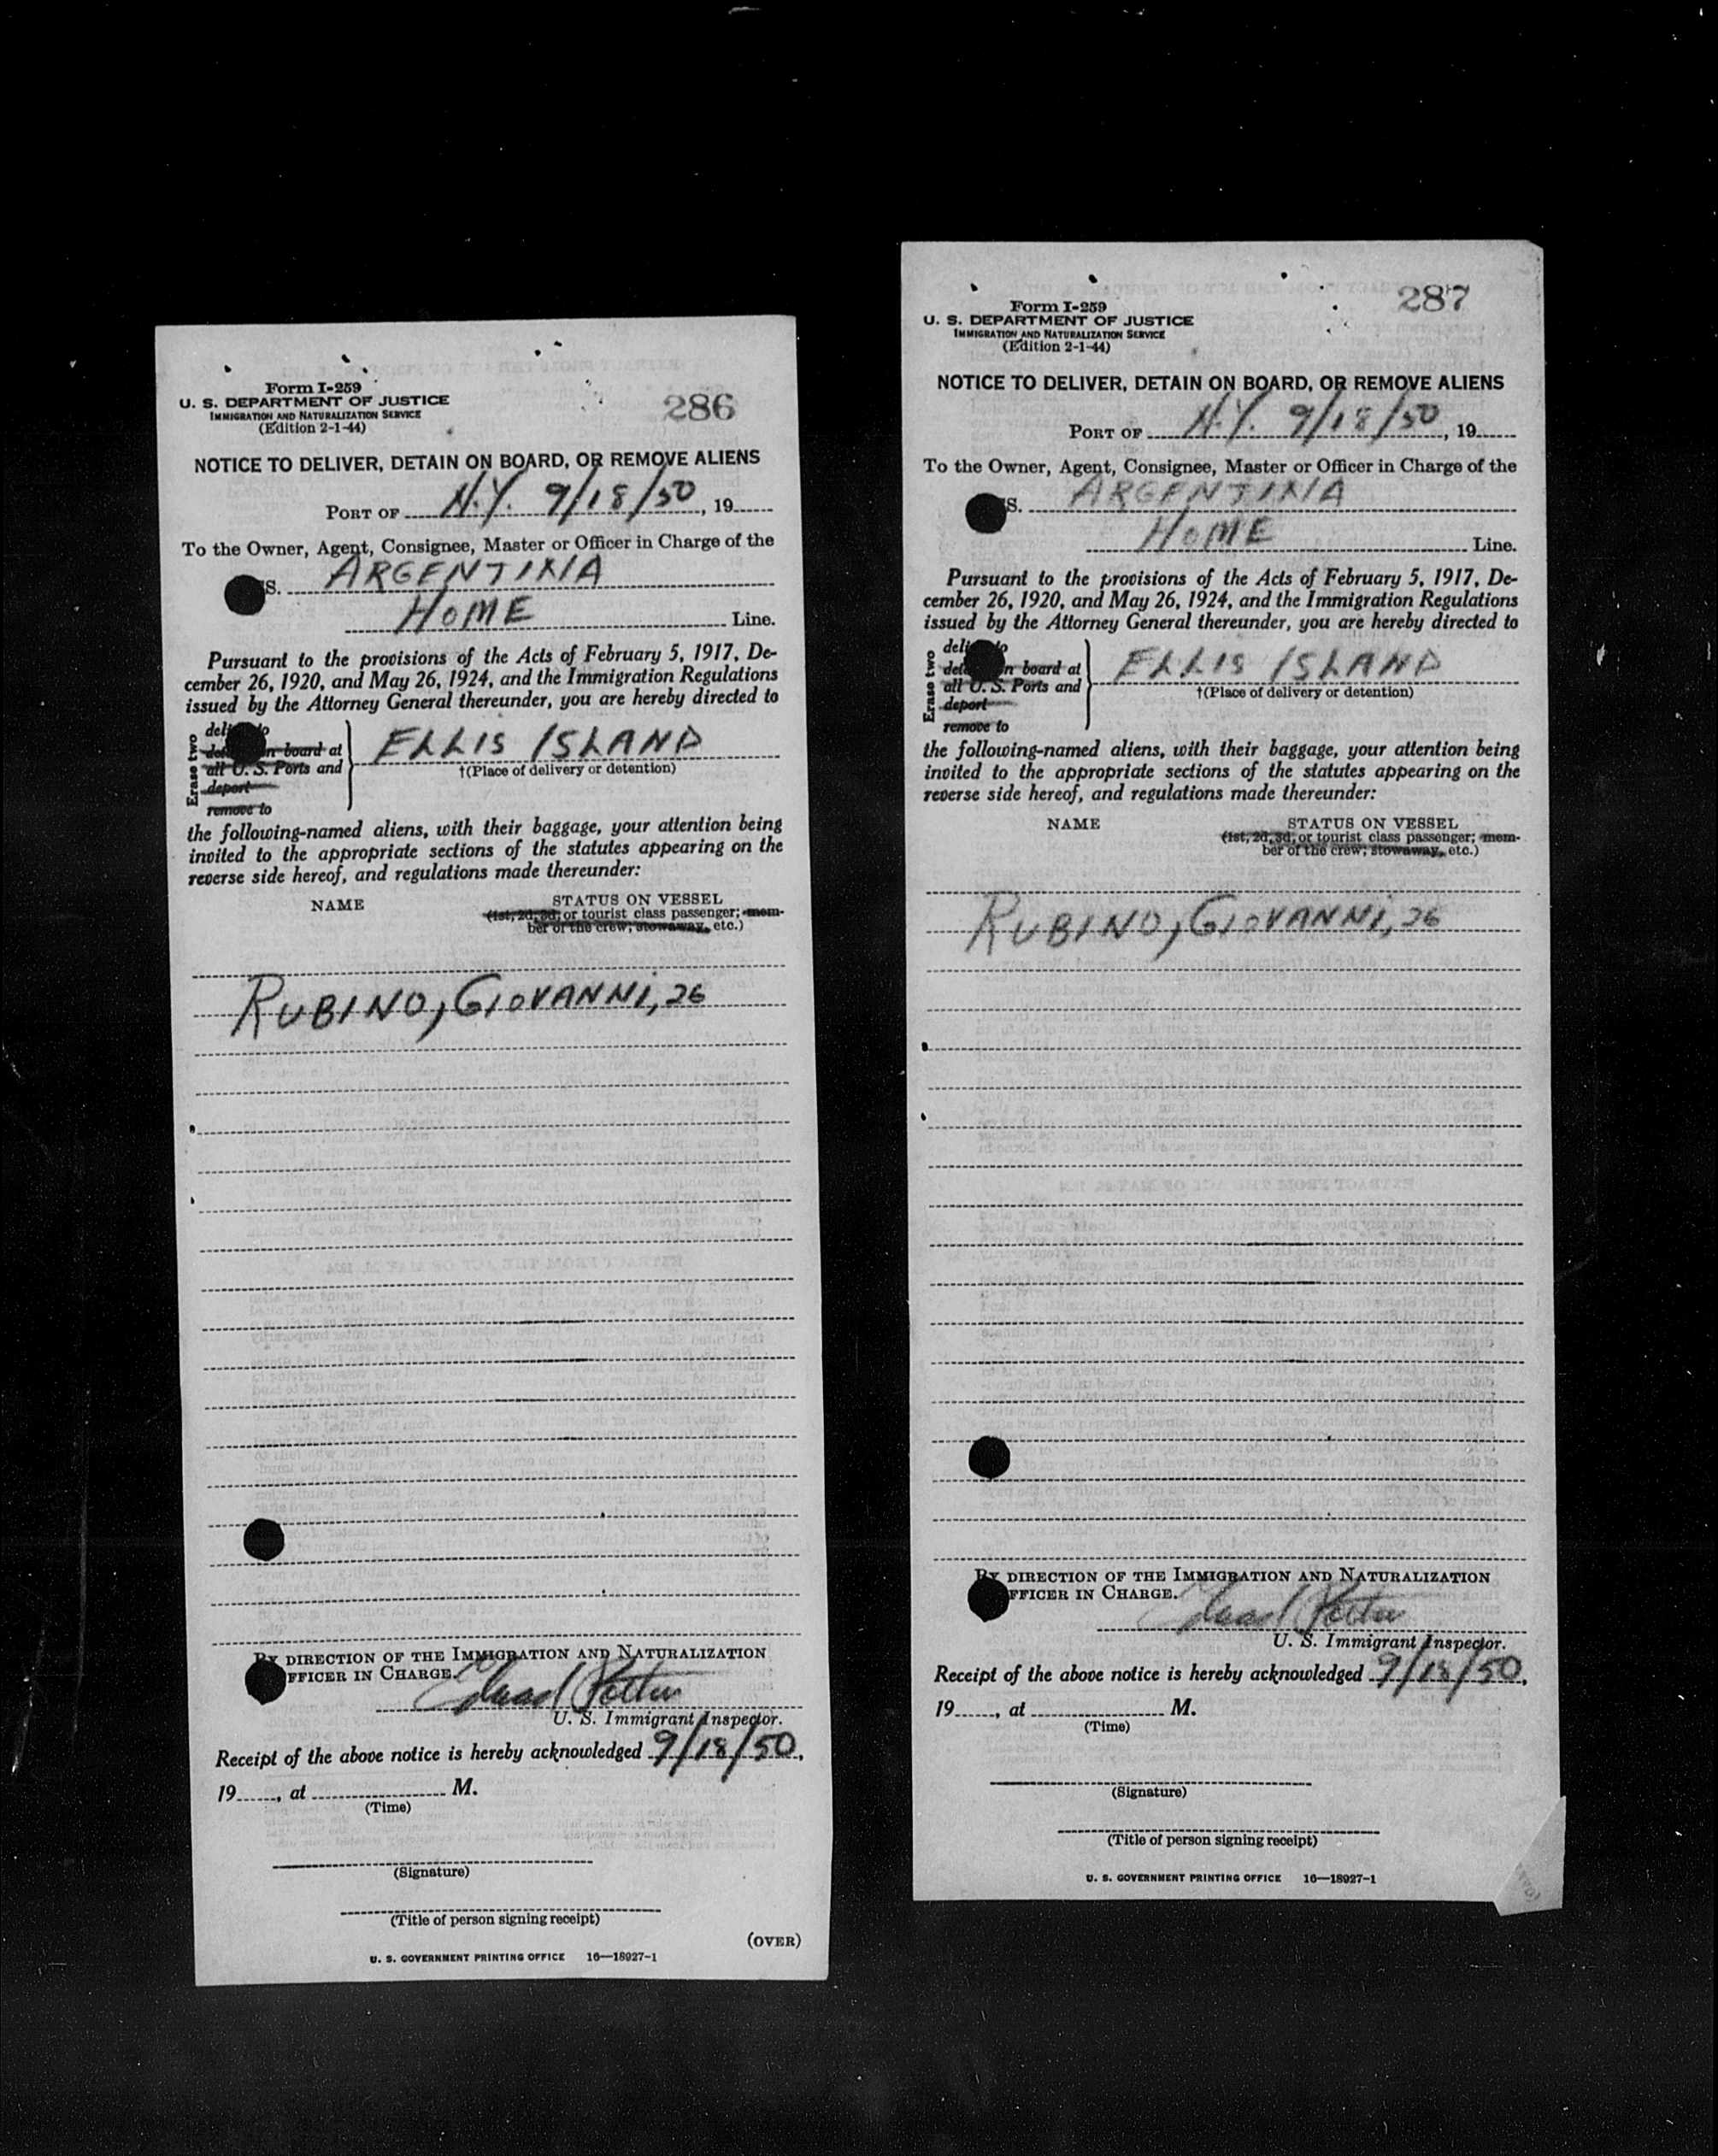 Form I-259
U. S. DEPARTMENT OF JUSTICE
IMMIGRATION AND NATURALIZATION SERVICE
(Edition 2-1-44)
286
NOTICE TO DELIVER, DETAIN ON BOARD, OR REMOVE ALIENS
PORT OF N.Y. 9/18/50, 19
To the Owner, Agent, Consignee, Master or Officer in Charge of the
S. ARGENTINA
HOME Line.
Pursuant to the provisions of the Acts of February 5, 1917, De-
cember 26, 1920, and May 26, 1924, and the Immigration Regulations
issued by the Attorney General thereunder, you are hereby directed to
Erase two
board at
all U. S. Ports and
deport
remove to
ELLIS ISLAND
†(Place of delivery or detention)
the following-named aliens, with their baggage, your attention being
invited to the appropriate sections of the statutes appearing on the
reverse side hereof, and regulations made thereunder:
NAME
STATUS ON VESSEL
(1st, 2d, 3d, or tourist class passenger; mem-
ber of the crew; stowaway, etc.)
RUBINO, GIOVANNI, 26
BY DIRECTION OF THE IMMIGRATION AND NATURALIZATION
FFICER IN CHARGE.
U. S. Immigrant Inspector.
Receipt of the above notice is hereby acknowledged 9/18/50,
19, at M.
(Time)
(Signature)
(Title of person signing receipt)
(OVER)
U. S. GOVERNMENT PRINTING OFFICE 16—18927-1
Form I-259
U. S. DEPARTMENT OF JUSTICE
IMMIGRATION AND NATURALIZATION SERVICE
(Edition 2-1-44)
287
NOTICE TO DELIVER, DETAIN ON BOARD, OR REMOVE ALIENS
PORT OF N.Y. 9/18/50, 19
To the Owner, Agent, Consignee, Master or Officer in Charge of the
S. ARGENTINA
HOME Line.
Pursuant to the provisions of the Acts of February 5, 1917, De-
cember 26, 1920, and May 26, 1924, and the Immigration Regulations
issued by the Attorney General thereunder, you are hereby directed to
Erase two
board at
all U. S. Ports and
deport
remove to
ELLIS ISLAND
†(Place of delivery or detention)
the following-named aliens, with their baggage, your attention being
invited to the appropriate sections of the statutes appearing on the
reverse side hereof, and regulations made thereunder:
NAME
STATUS ON VESSEL
(1st, 2d, 3d, or tourist class passenger; mem-
ber of the crew; stowaway, etc.)
RUBINO, GIOVANNI, 26
BY DIRECTION OF THE IMMIGRATION AND NATURALIZATION
FFICER IN CHARGE.
U. S. Immigrant Inspector.
Receipt of the above notice is hereby acknowledged 9/18/50,
19, at M.
(Time)
(Signature)
(Title of person signing receipt)
U. S. GOVERNMENT PRINTING OFFICE 16—18927-1